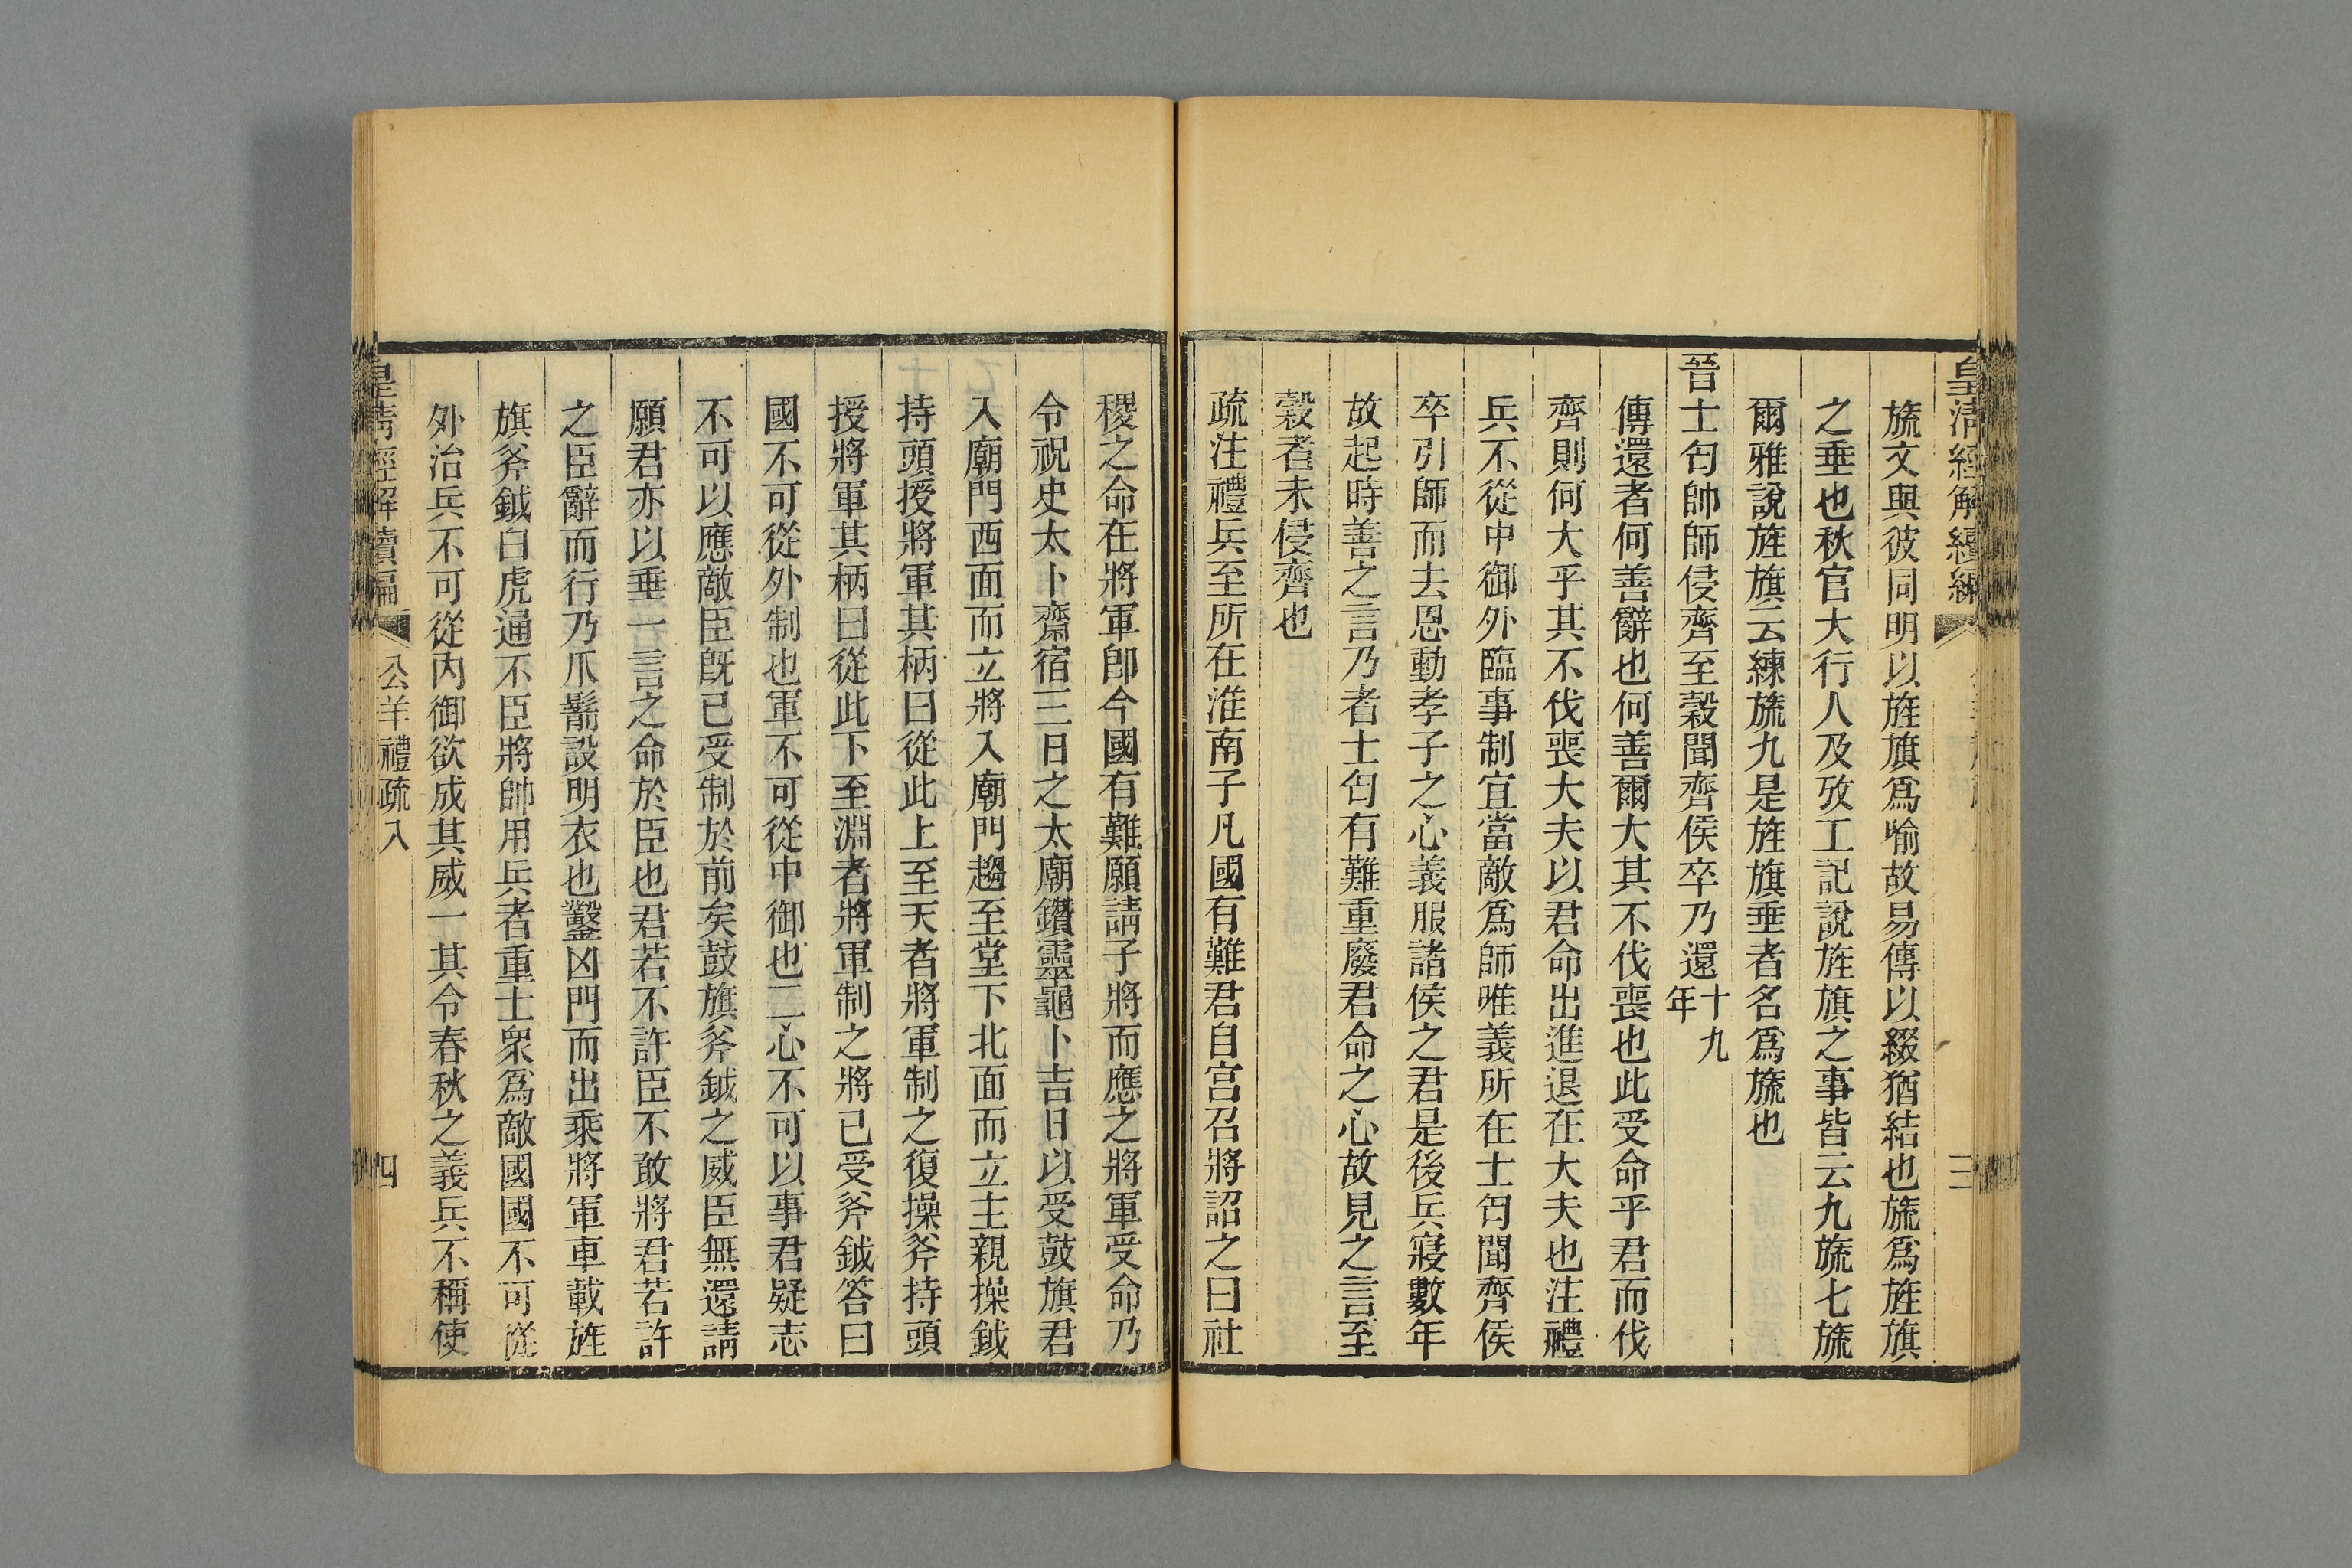 皇清經解續編
三
旒文與彼同明以旌旗爲喻故易傳以綴猶結也旒爲旌旗
之垂也秋官大行人及攷工記說旌旗之事皆云九旒七旒
爾雅說旌旗云練旒九是旌旗垂者名爲旒也
晉士匄帥師侵齊至穀聞齊侯卒乃還十九年
傳還者何善辭也何善爾大其不伐喪也此受命乎君而伐
齊則何大乎其不伐喪大夫以君命出進退在大夫也注禮
兵不從中御外臨事制宜當敵爲師唯義所在士匄聞齊侯
卒引師而去恩動孝子之心義服諸侯之君是後兵寢數年
故起時善之言乃者士匄有難重廢君命之心故見之言至
穀者未侵齊也
疏注禮兵至所在淮南子凡國有難君自宮召將詔之曰社
稷之命在將軍卽今國有難願請子將而應之將軍受命乃
令祝史太卜齋宿三日之太廟鑽靈龜卜吉日以受鼓旗君
入廟門西面而立將入廟門趨至堂下北面而立主親操鉞
持頭授將軍其柄曰從此上至天者將軍制之復操斧持頭
授將軍其柄曰從此下至淵者將軍制之將已受斧鉞答曰
國不可從外制也軍不可從中御也二心不可以事君疑志
不可以應敵臣旣已受制於前矣鼓旗斧鉞之威臣無還請
願君亦以垂一言之命於臣也君若不許臣不敢將君若許
之臣辭而行乃爪鬋設明衣也鑿凶門而出乘將軍車載旌
旗斧鉞白虎通不臣將帥用兵者重士衆爲敵國國不可從
外治兵不可從內御欲成其威一其令春秋之義兵不稱使
皇淸經解續編
公羊禮疏八
四